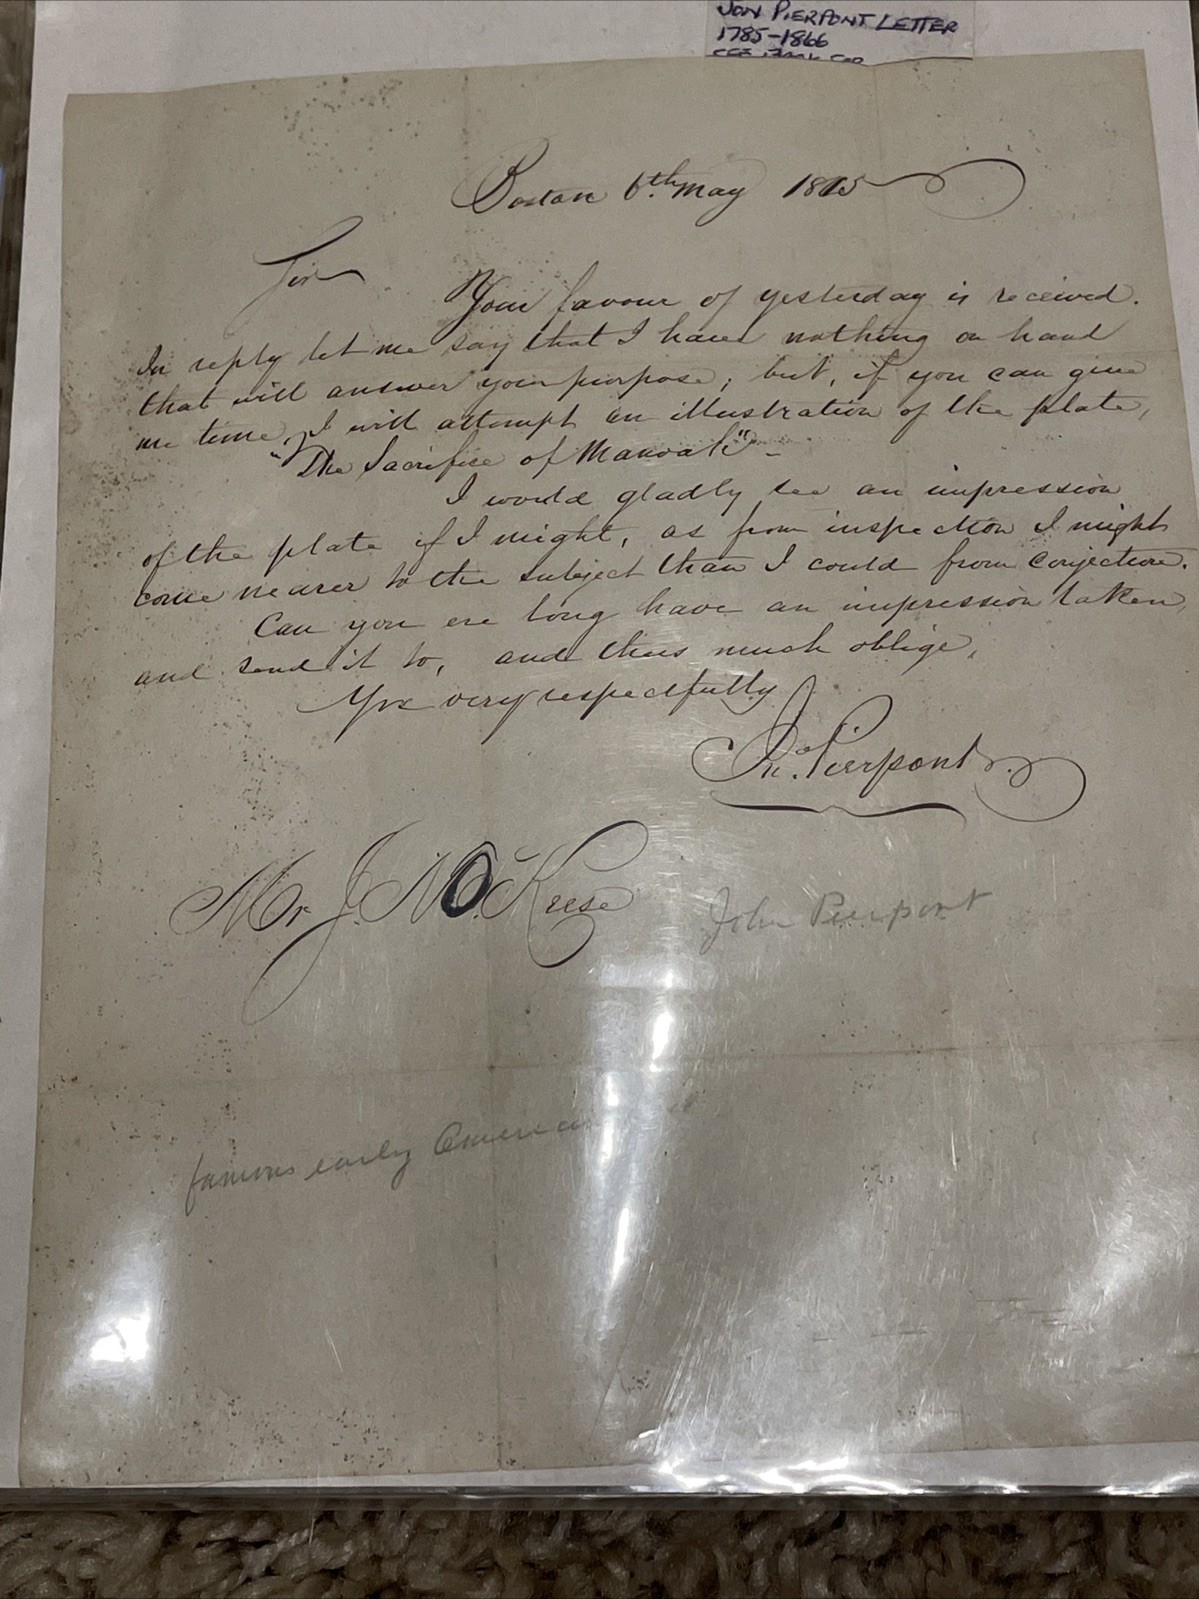 JON PIERPONT LETTER
1785-1866
Boston 6th May
Sir
Your favour of yesterday is received.
In reply let me say that I have nothing on hand
that will answer your purpose; but, if you can give
me time, I will attempt an illustration of the plate,
"The Sacrifice of Manoah" -
I would gladly see an impression
of the plate if I might, as from inspection I might
come nearer to the subject than I could from conjecture.
Can you ere long have an impression taken,
and send it to, and thus much oblige,
Yrs very respectfully
Jno. Pierpont.
Mr. J. Keese
John Pierpont
famous early American